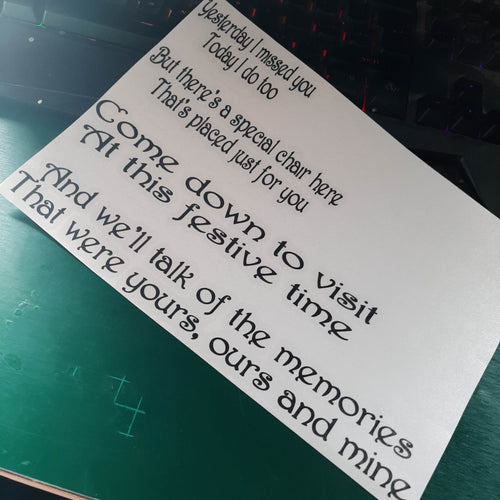 Yesterday I missed you
Today I do too
But there's a special chair here
That's placed just for you
Come down to visit
At this festive time
And we'll talk of the memories
That were yours, ours and mine
4